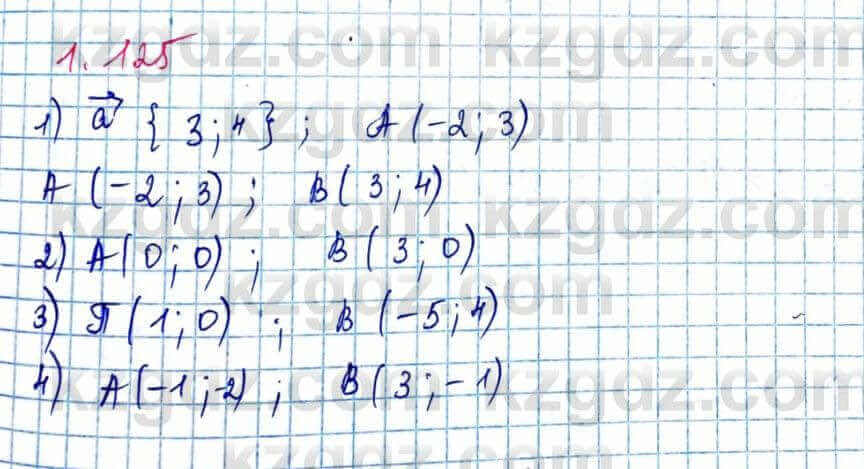 1.125
1) a⃗ { 3 ; 4 } ; A (-2 ; 3)
A (-2 ; 3) ; B ( 3 ; 4)
2) A( 0 ; 0) ; B ( 3 ; 0)
3) П ( 1 ; 0) ; B (-5 ; 4)
4) A(-1 ; -2) ; B( 3 ; -1)
kzgdz.com kzgdz.com
kzgdz.com
kzgdz.com kzgdz.com
kzgdz.com
kzgdz.com kzgdz.com
kzgdz.com